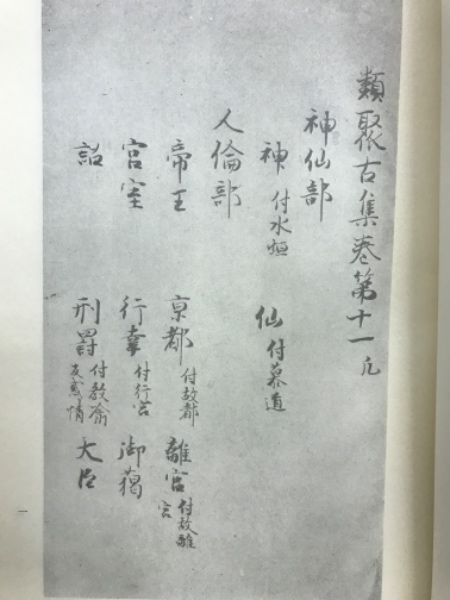 類聚古集巻第十一
神仙部
神 付水 仙 付慕道
人倫部
帝王 京都 付故都 離宮 付故離宮
宮室 行幸 付行宮 御
詔 刑罰 付教喩 反 情 大臣
一